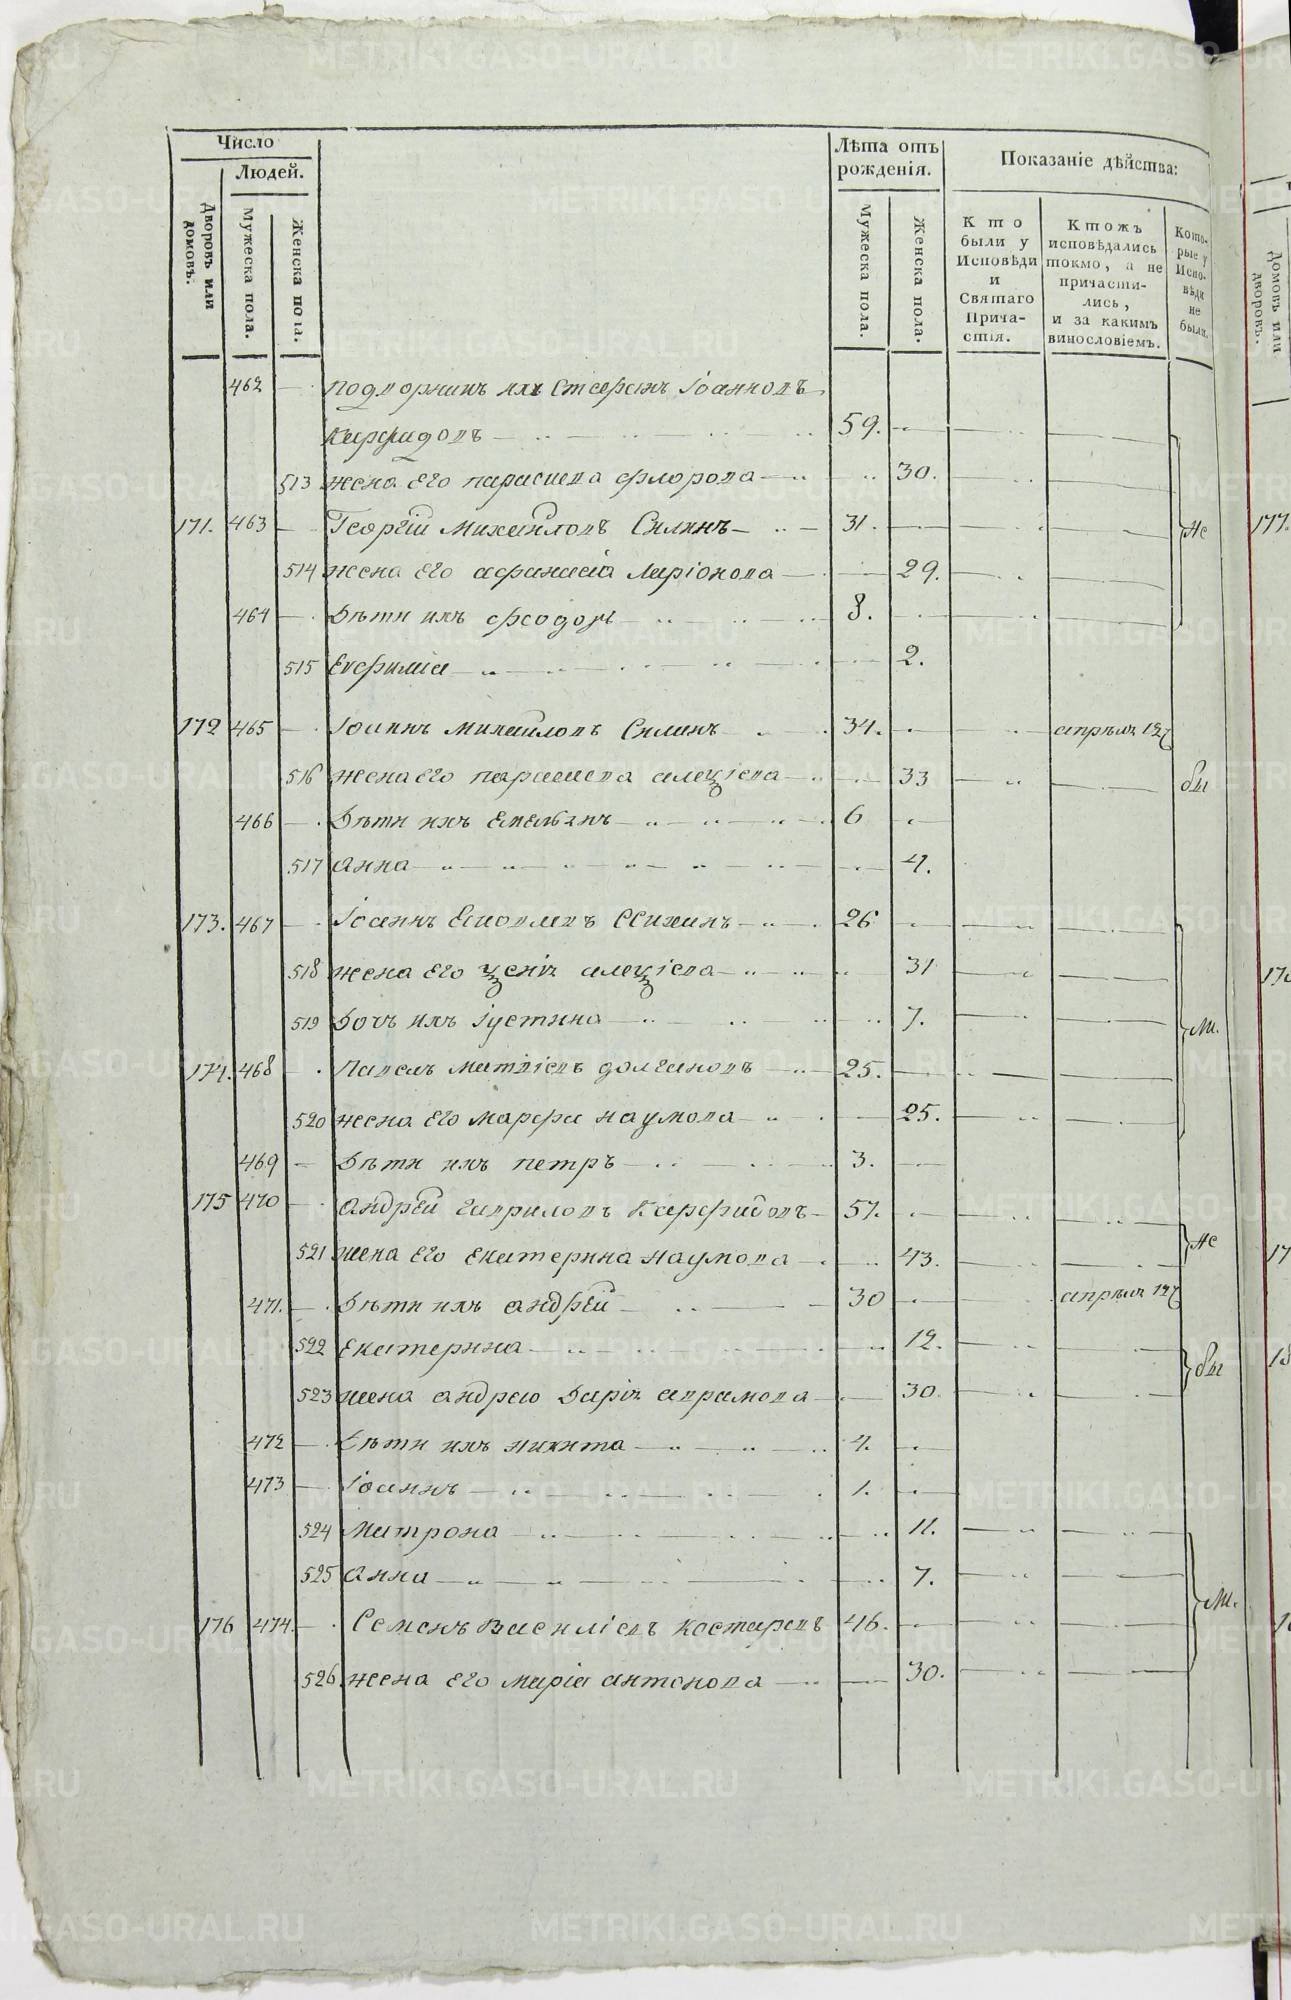 Число
Людей.
Дворовъ или домовъ.
Мужеска пола.
Женска пола.
Лѣта отъ рожденія.
Мужеска пола.
Женска пола.
Показаніе дѣйства:
Кто были у Исповѣди и Святаго Причастія.
Ктожъ исповѣдались токмо, а не причастились, и за какимъ винословіемъ.
Которые у Исповѣди не были.
462 подворникъ ихъ Стефанъ Іоанновъ
59.
513 жена его параскева флорова 30.
171. 463 Георгій михаиловъ Силинъ 31. не
514 жена его афанасія ларіонова 29.
464 Дѣти ихъ феодоръ 8.
515 Евфимія 2.
172 465 Іоаннъ михаиловъ Силинъ 34.
516 жена его параскева алеѯіева 33 бы
466 Дѣти ихъ Емельянъ 6
517 анна 4.
173. 467 Іоаннъ 26
518 жена его ѯенія алеѯіева 31
519 Дочь ихъ Іустина 7. м.
174. 468 Павелъ матвіевъ долгановъ 25.
520 жена его марфа наумова 25.
469 Дѣти ихъ петръ 3.
175 470 андрей гавриловъ 57. не
521 жена его екатерина наумова 43.
471. Дѣти ихъ андрей 30
522 екатерина 12. бы
523 жена андрею Дарія аврамова 30.
472 Дѣти ихъ никита 4.
473 Іоаннъ 1.
524 матрона 11.
525 анна 7. м.
176 474. Семенъ Василіевъ костаревъ 46.
526 жена его марія антонова 30.
Домовъ или дворовъ.
177.
METRIKI.GASO-URAL.RU